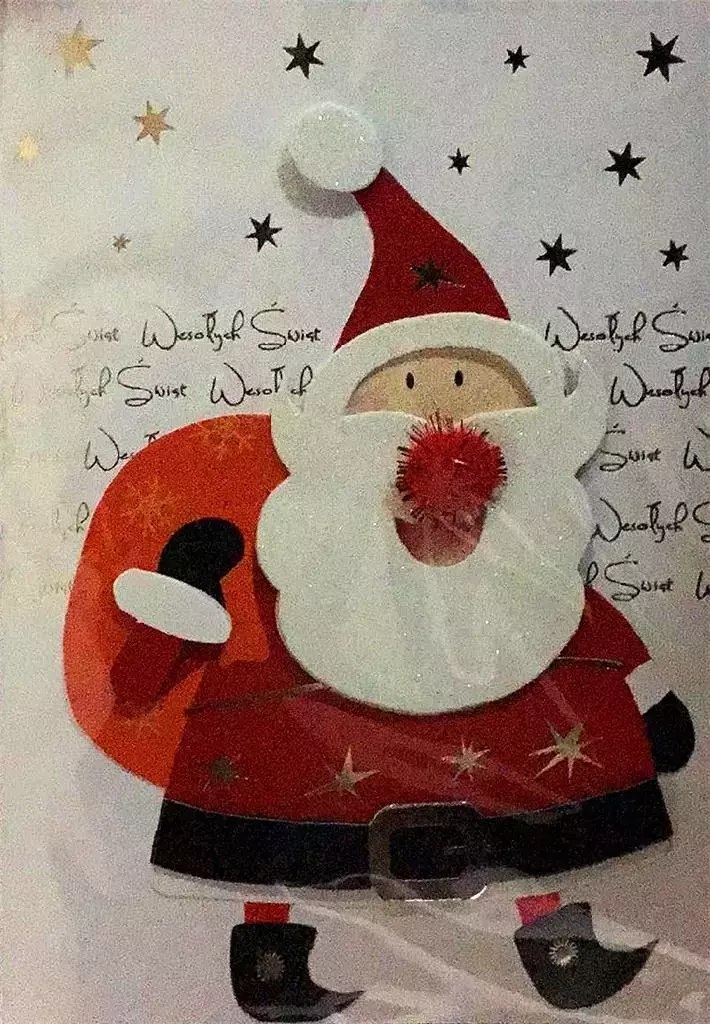 Świąt Wesołych Świąt Wesołych Świ
Świąt Wesoł ch Wesołych
We Świąt W
Wesołych Ś
Świąt W